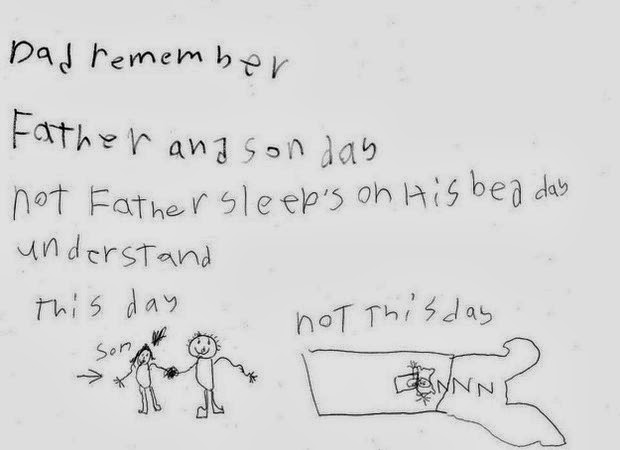 Dad remember
Father and son day
not Father sleep's on His bed day
understand
This day
not This day
son
NNN